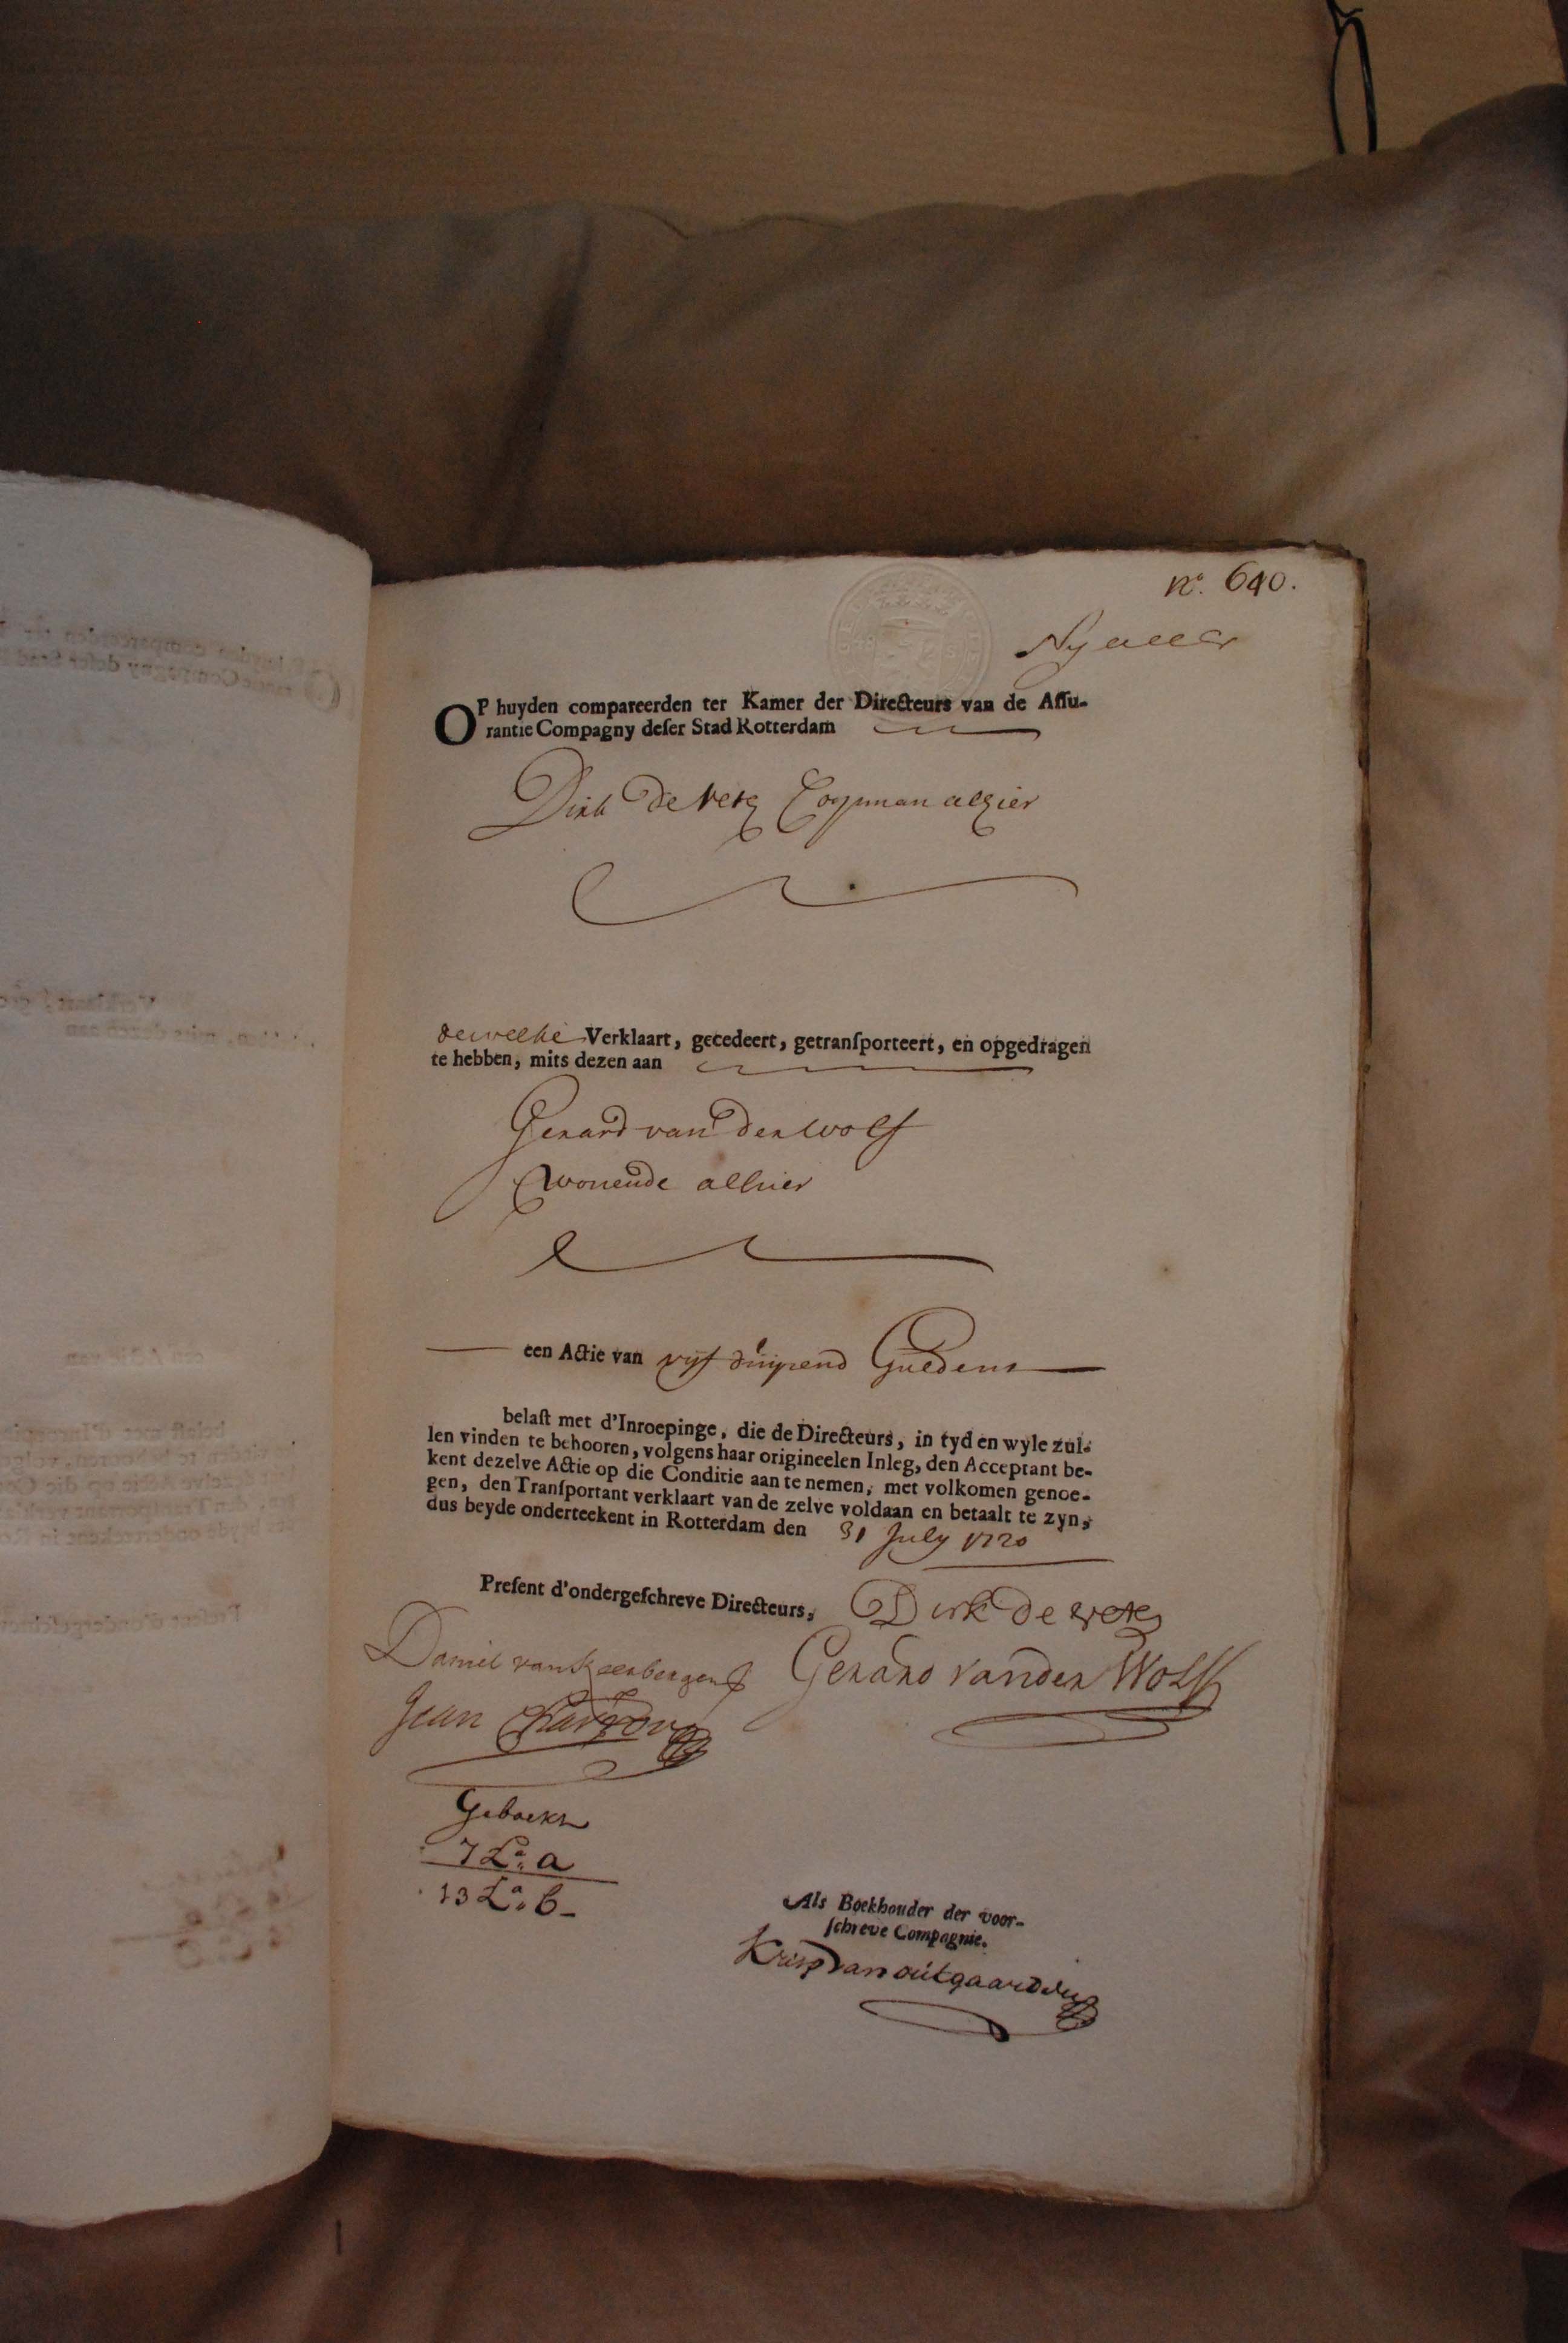 no. 640.
OP huyden compareerden ter Kamer der Directeurs van de Aſſu-
rantie Compagny deſer Stad Rotterdam
Dirk de
Coopman alhier
dewelke Verklaart, gecedeert, getranſporteert, en opgedragen
te hebben, mits dezen aan
Gerard van der Wolf
wonende alhier
een Actie van vyf duysend Guldens
belaſt met d'Inroepinge, die de Directeurs, in tyd en wyle zul-
len vinden te behooren, volgens haar origineelen Inleg, den Acceptant be-
kent dezelve Actie op die Conditie aan te nemen, met volkomen genoe-
gen, den Tranſportant verklaart van de zelve voldaan en betaalt te zyn,
dus beyde onderteekent in Rotterdam den 31 July 1720
Preſent d'ondergeſchreve Directeurs,
Dirk de
Daniel van Keerbergen
Gerard vander Wolff
Jean
Geboekt
7 La. a
13 La. b
Als Boekhouder der voor-
ſchreve Compagnie.
Kris van outgaarden